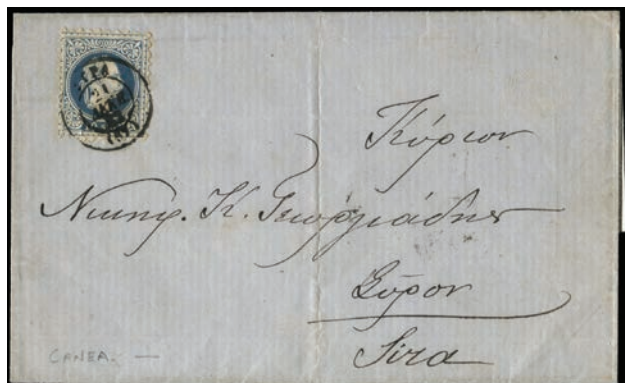 21
(67)
Κύριον
Νικηφ. Κ. Γεωργιάδην
Σύρον
Sira
CANEA. —